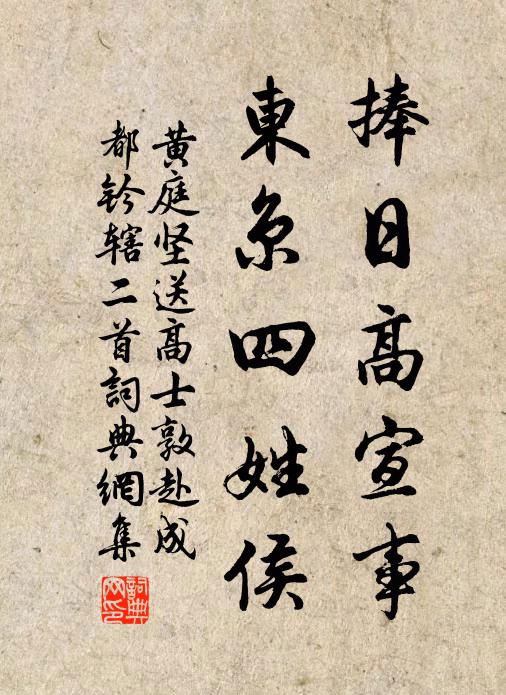 捧日高宣事
東京四姓侯
黄庭坚送高士敦赴成
都钤辖二首詞典網集
詞典网印